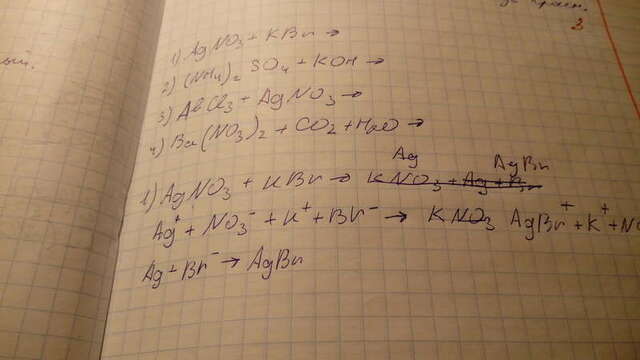 1) AgNO₃ + KBr →
2) (NH₄)₂ SO₄ + KOH →
3) AlCl₃ + AgNO₃ →
4) Ba(NO₃)₂ + CO₂ + H₂O →
1) AgNO₃ + KBr → KNO₃ + Ag AgBr
Ag⁺ + NO₃⁻ + K⁺ + Br⁻ → KNO₃ AgBr + K⁺ + NO
Ag + Br⁻ → AgBr